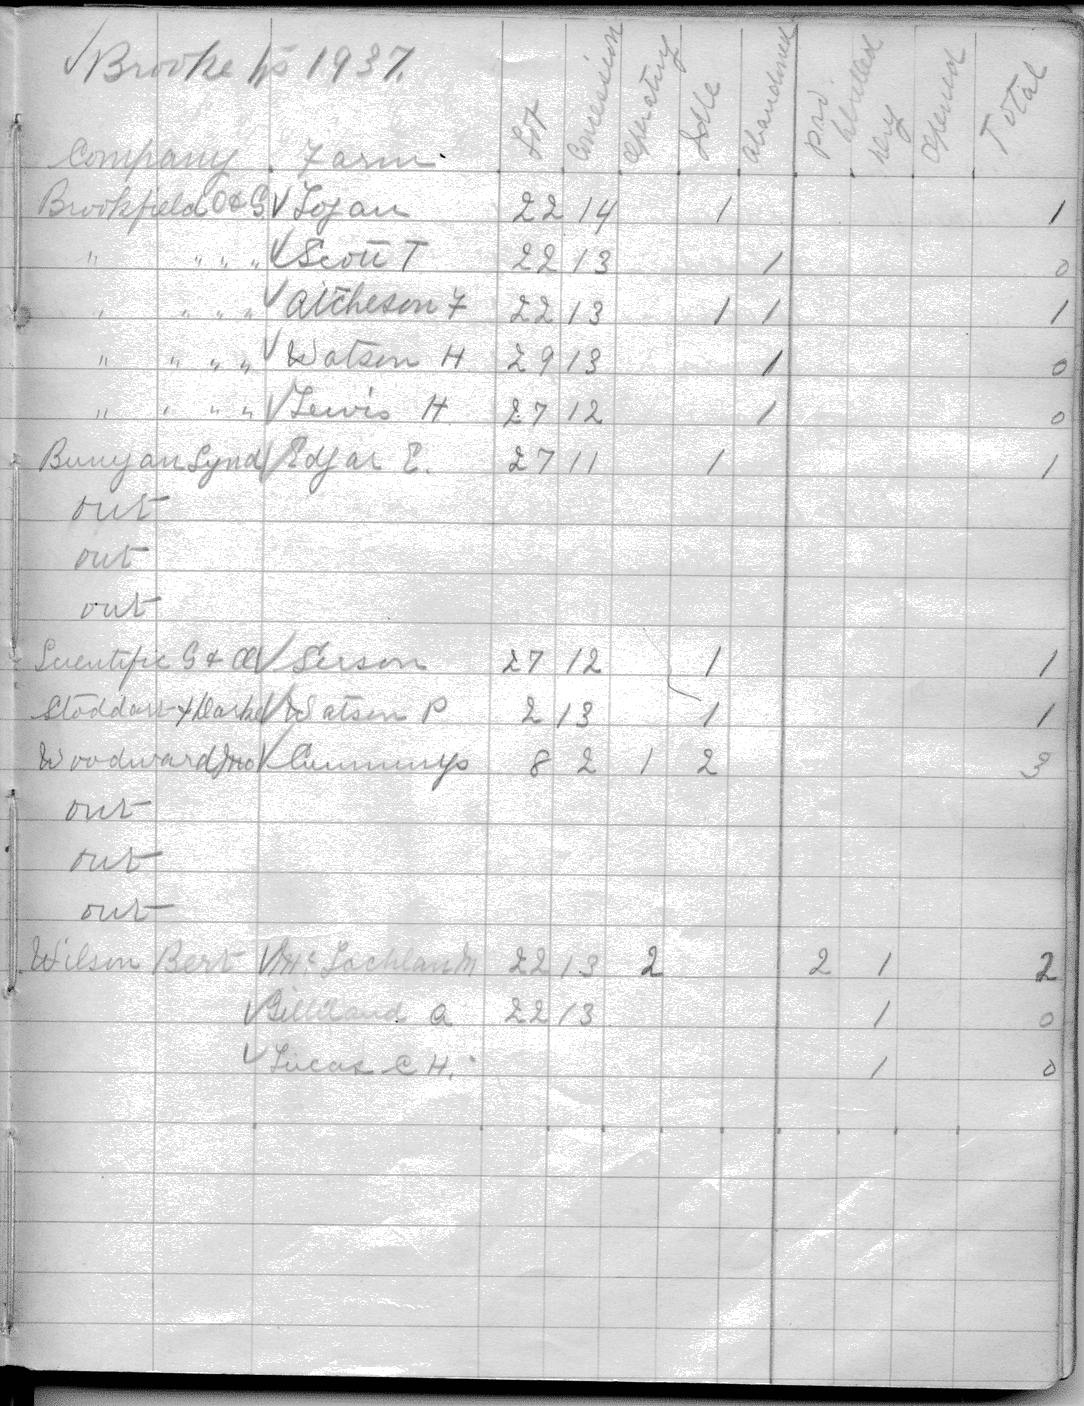 √ Brooke tp 1937.
Company Farm Lot Concession Operating Idle abandoned pro. drilled dry opened Total
Brookfield O & G √ Logan 22 14 1 1
" " " " √ Scott T 22 13 1 0
" " " " √ Aitcheson F 22 13 1 1 1
" " " " √ Watson H 29 13 1 0
" " " " √ Lewis H 27 12 1 0
Bunyan Synd √ Edgar E. 27 11 1 1
out
out
out
Scientific G & O √ Serson 27 12 1 1
Stoddart & √ Watson P 2 13 1 1
Woodward Jno √ Cummings 8 2 1 2 3
out
out
out
Wilson Bert √ McLachlan M 22 13 2 2 1 2
√ Gilliland A 22 13 1 0
√ Lucas C H. 1 0